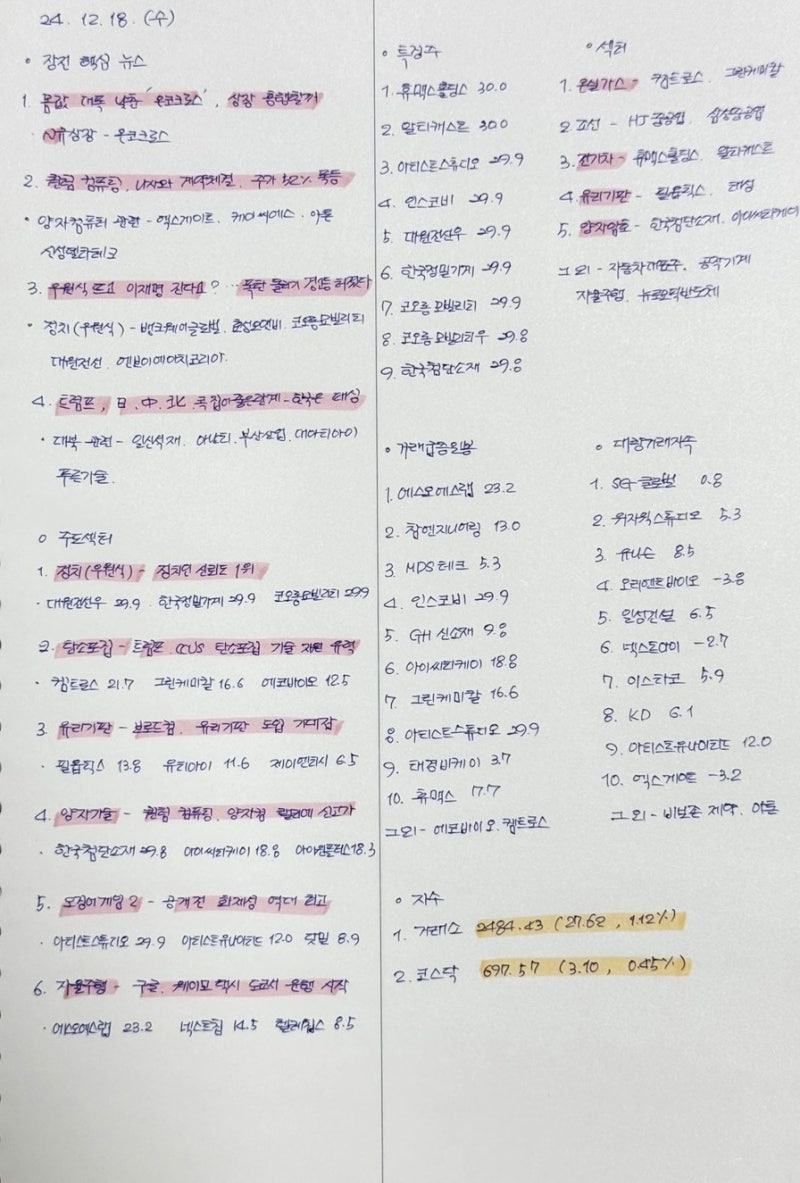 24. 12. 18. (수)
• 장전 핵심 뉴스
1. 몸값 대폭 낮춘 '온코크로스', 상장 흥행할까
· 신규상장 - 온코크로스
2. 퀀텀 컴퓨팅, 나사와 계약체결, 주가 52% 폭등
• 양자컴퓨터 관련 - 엑스게이트. 케이씨에스. 아톤
신성델타테크
3. 우원식 뜨고 이재명 진다고? … 폭탄 돌리기 정치 허찔다
• 정치(우원식) - 뱅크웨어글로벌. 효성오앤비. 코오롱모빌리티
대원전선. 엔브이에이치코리아.
4. 트럼프, 日. 中. 北 콕집어 좋은관계 - 한국은 패싱
• 대북 관련 - 일신석재. 아난티. 부산산업. 대아티아이
푸른기술.
○ 주도섹터
1. 정치(우원식) - 정치인 신뢰도 1위
· 대원전선우 29.9 한국정밀기계 29.9 코오롱모빌리티 29.9
2. 탄소포집 - 트럼프. CCUS 탄소포집 기술 지원 유력
· 켐트로스 21.7 그린케미칼 16.6 에코바이오 12.5
3. 유리기판 - 브로드컴. 유리기판 도입 기대감
· 필옵틱스 13.8 유티아이 11.6 제이앤티씨 6.5
4. 양자기술 - 퀀텀 컴퓨팅. 양자컴 랠리에 신고가
· 한국첨단소재 29.8 아이씨티케이 18.8 아이윈플러스 18.3
5. 오징어게임2 - 공개전 화제성 역대 최고
· 아티스트스튜디오 29.9 아티스트유나이티드 12.0 덧밀 8.9
6. 자율주행 - 구글. 웨이모 택시 도쿄서 운행 시작
· 에스오에스랩 23.2 넥스트칩 14.5 텔레칩스 8.5
• 특징주
1. 휴맥스홀딩스 30.0
2. 알티캐스트 30.0
3. 아티스트스튜디오 29.9
4. 인스코비 29.9
5. 대원전선우 29.9
6. 한국정밀기계 29.9
7. 코오롱모빌리티 29.9
8. 코오롱모빌리티우 29.8
9. 한국첨단소재 29.8
• 섹터
1. 온실가스 - 켐트로스. 그린케미칼
2. 조선 - HJ중공업. 삼성중공업
3. 전기차 - 휴맥스홀딩스. 알티캐스트
4. 유리기판 - 필옵틱스. 태성
5. 양자암호 - 한국첨단소재. 아이씨티케이
그 외 - 자동차대표주. 공작기계
자율주행. 뉴로모픽반도체
• 거래급증일봉
1. 에스오에스랩 23.2
2. 참엔지니어링 13.0
3. MDS테크 5.3
4. 인스코비 29.9
5. GH신소재 9.8
6. 아이씨티케이 18.8
7. 그린케미칼 16.6
8. 아티스트스튜디오 29.9
9. 태경비케이 3.7
10. 휴맥스 17.7
그 외 - 에코바이오. 켐트로스
○ 대량거래지속
1. SG글로벌 0.8
2. 위지윅스튜디오 5.3
3. 유니슨 8.5
4. 오리엔트바이오 -3.8
5. 일성건설 6.5
6. 넥스트아이 -2.7
7. 이스타코 5.9
8. KD 6.1
9. 아티스트유나이티드 12.0
10. 엑스게이트 -3.2
그 외 - 비보존 제약. 아톤
○ 지수
1. 거래소 2484.43 (27.62, 1.12%)
2. 코스닥 697.57 (3.10, 0.45%)